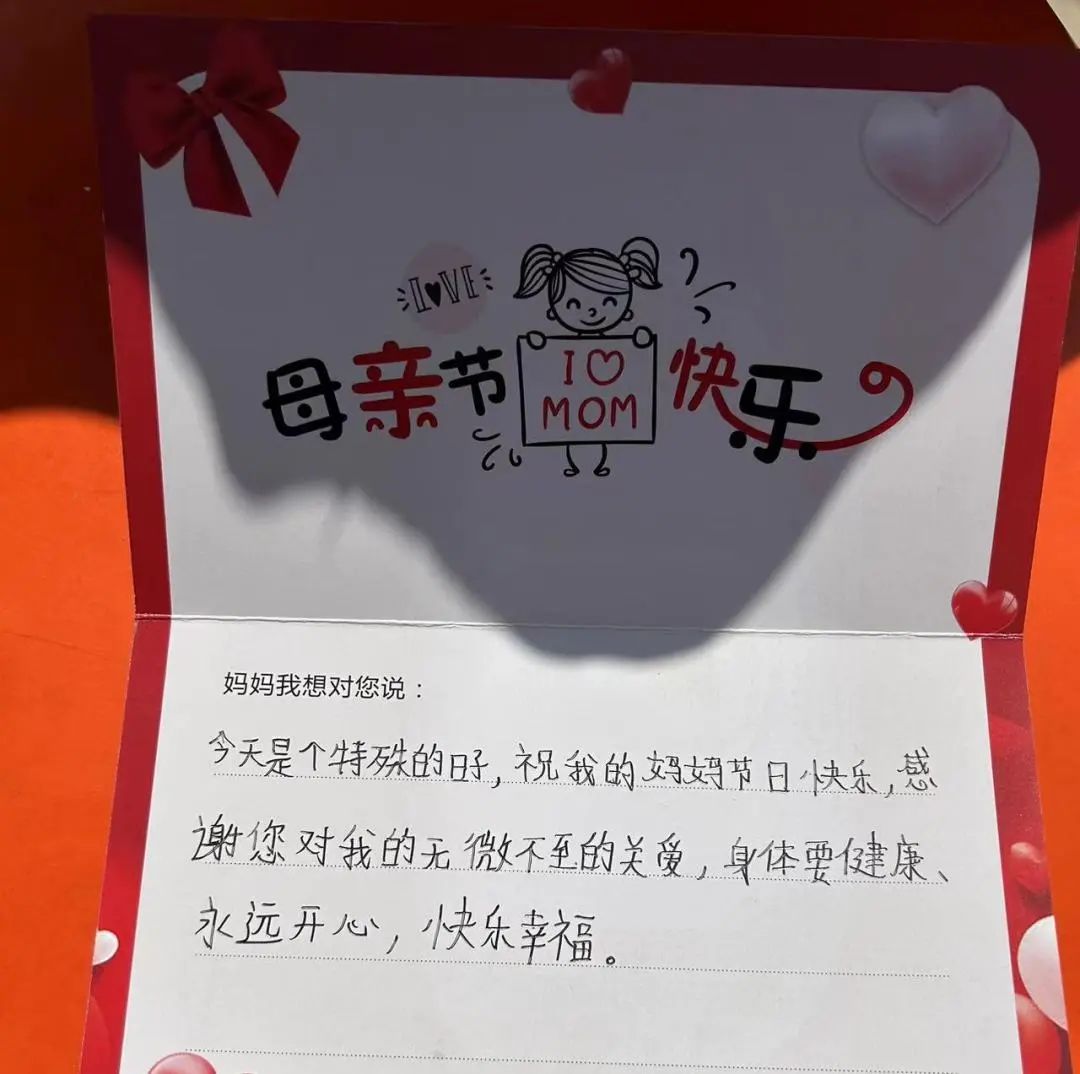 LOVE
母亲节快乐
I ♡
MOM
妈妈我想对您说：
今天是个特殊的日子，祝我的妈妈节日快乐，感
谢您对我的无微不至的关爱，身体要健康、
永远开心，快乐幸福。